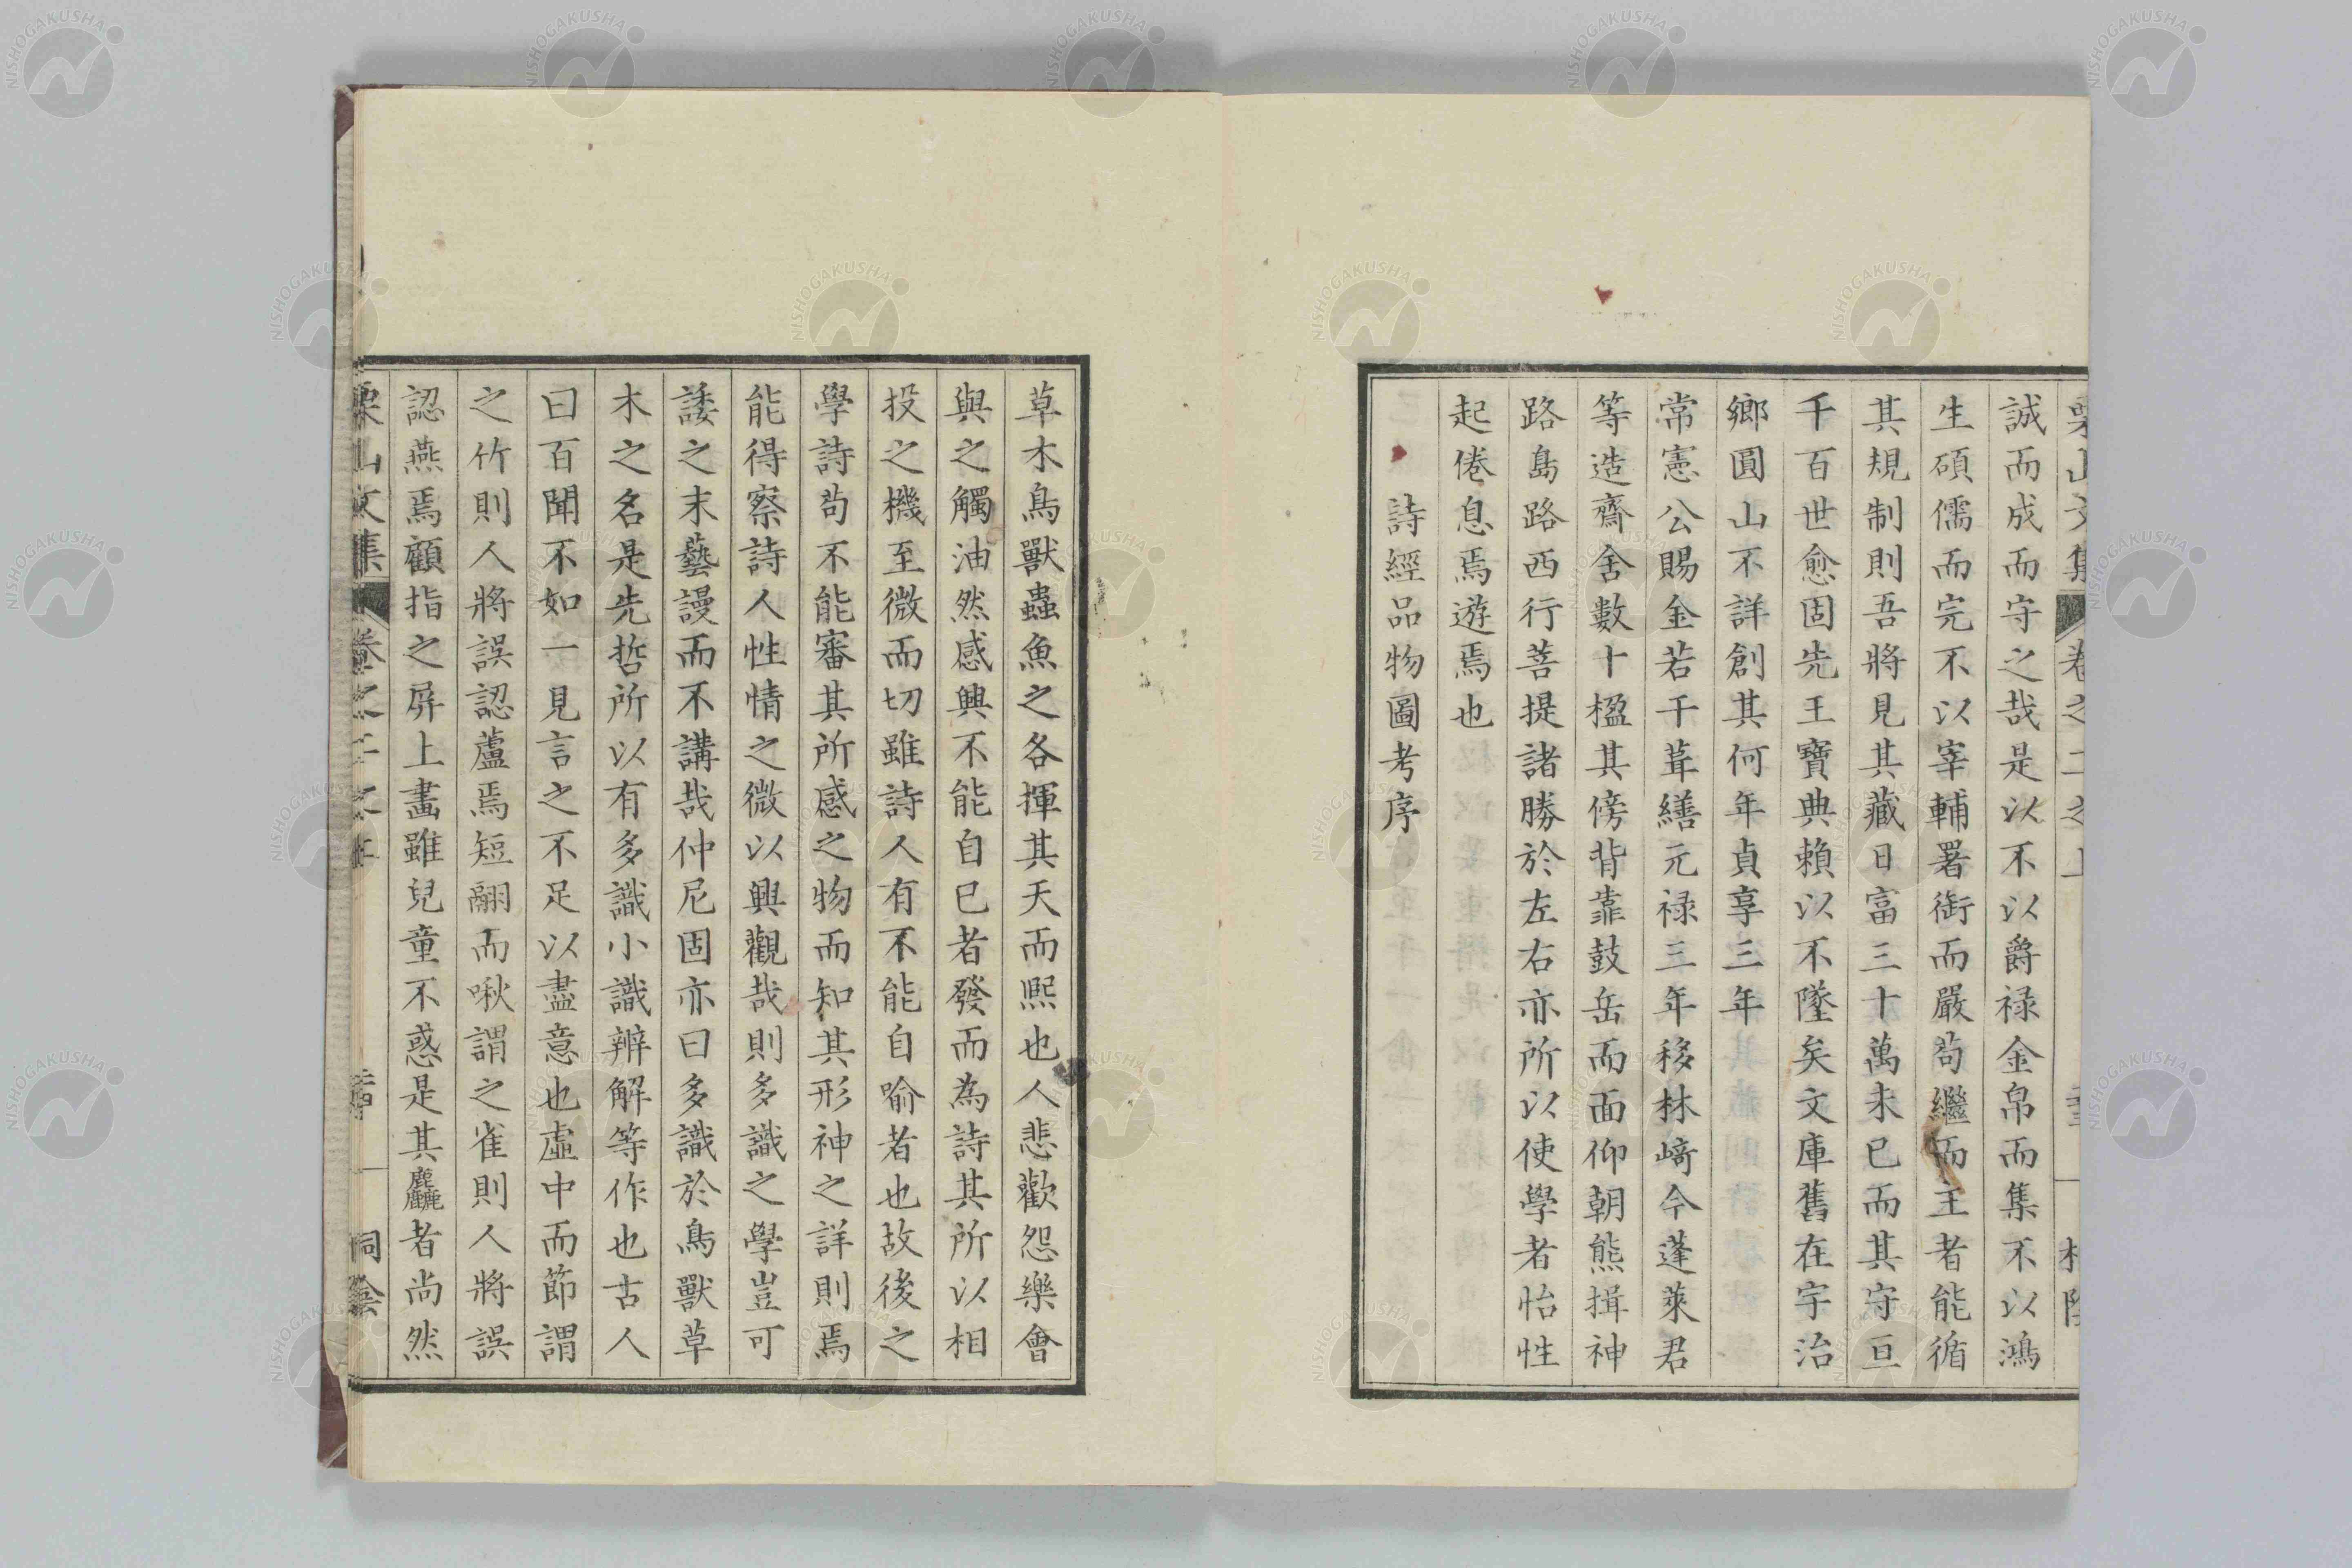 誠而成而守之哉是以不以爵祿金帛而集不以鴻
生碩儒而完不以宰輔署銜而嚴苟繼而王者能循
其規制則吾將見其藏日富三十萬未已而其守亘
千百世愈固先王寶典賴以不墜矣文庫舊在宇治
鄉圓山不詳創其何年貞享三年
常憲公賜金若干葺繕元禄三年移林﨑今蓬萊君
等造齋舍數十楹其傍背靠鼓岳而面仰朝熊揖神
路島路西行菩提諸勝於左右亦所以使學者怡性
起倦息焉遊焉也
詩經品物圖考序
草木鳥獸蟲魚之各揮其天而熙也人悲歡怨樂會
與之觸油然感興不能自已者發而為詩其所以相
投之機至微而切雖詩人有不能自喻者也故後之
學詩苟不能審其所感之物而知其形神之詳則焉
能得察詩人性情之微以興觀哉則多識之學豈可
諉之末藝謾而不講哉仲尼固亦曰多識於鳥獸草
木之名是先哲所以有多識小識辨解等作也古人
曰百聞不如一見言之不足以盡意也虛中而節謂
之竹則人將誤認蘆焉短翮而啾謂之雀則人將誤
認燕焉顧指之屏上畫雖兒童不惑是其麤者尚然
NISHOGAKUSHA